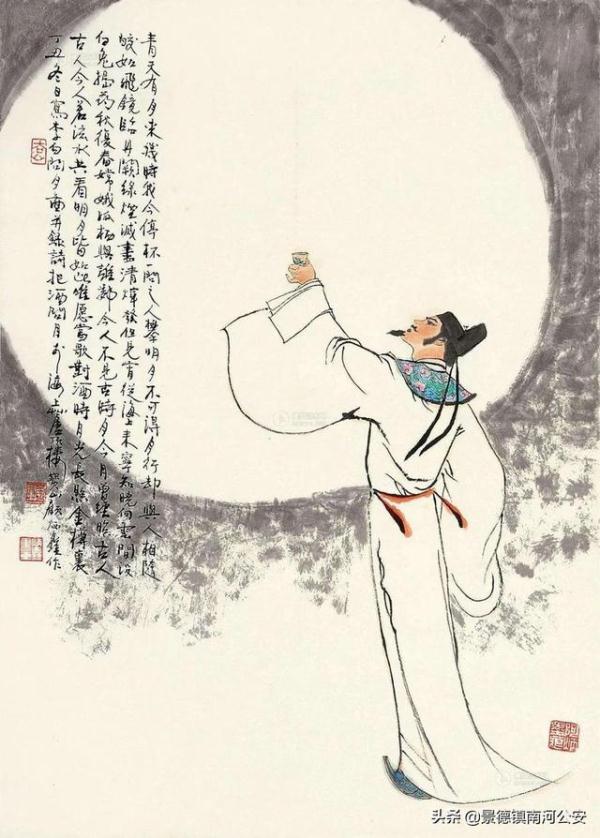 青天有月来幾時我今停杯一问之人攀明月不可得月行却與人相隨
皎如飛鏡臨丹闕綠煙滅盡清輝發但見宵從海上来寧知曉向雲間沒
白兔搗药秋復春嫦娥孤栖與誰鄰今人不見古時月今月曾經照古人
古人今人若流水共看明月皆如此唯愿當歌對酒時月光長照金樽裏
丁丑冬日寫李白问月并録詩把酒问月於海上樓顾炳鑫作
头条 @景德镇南河公安